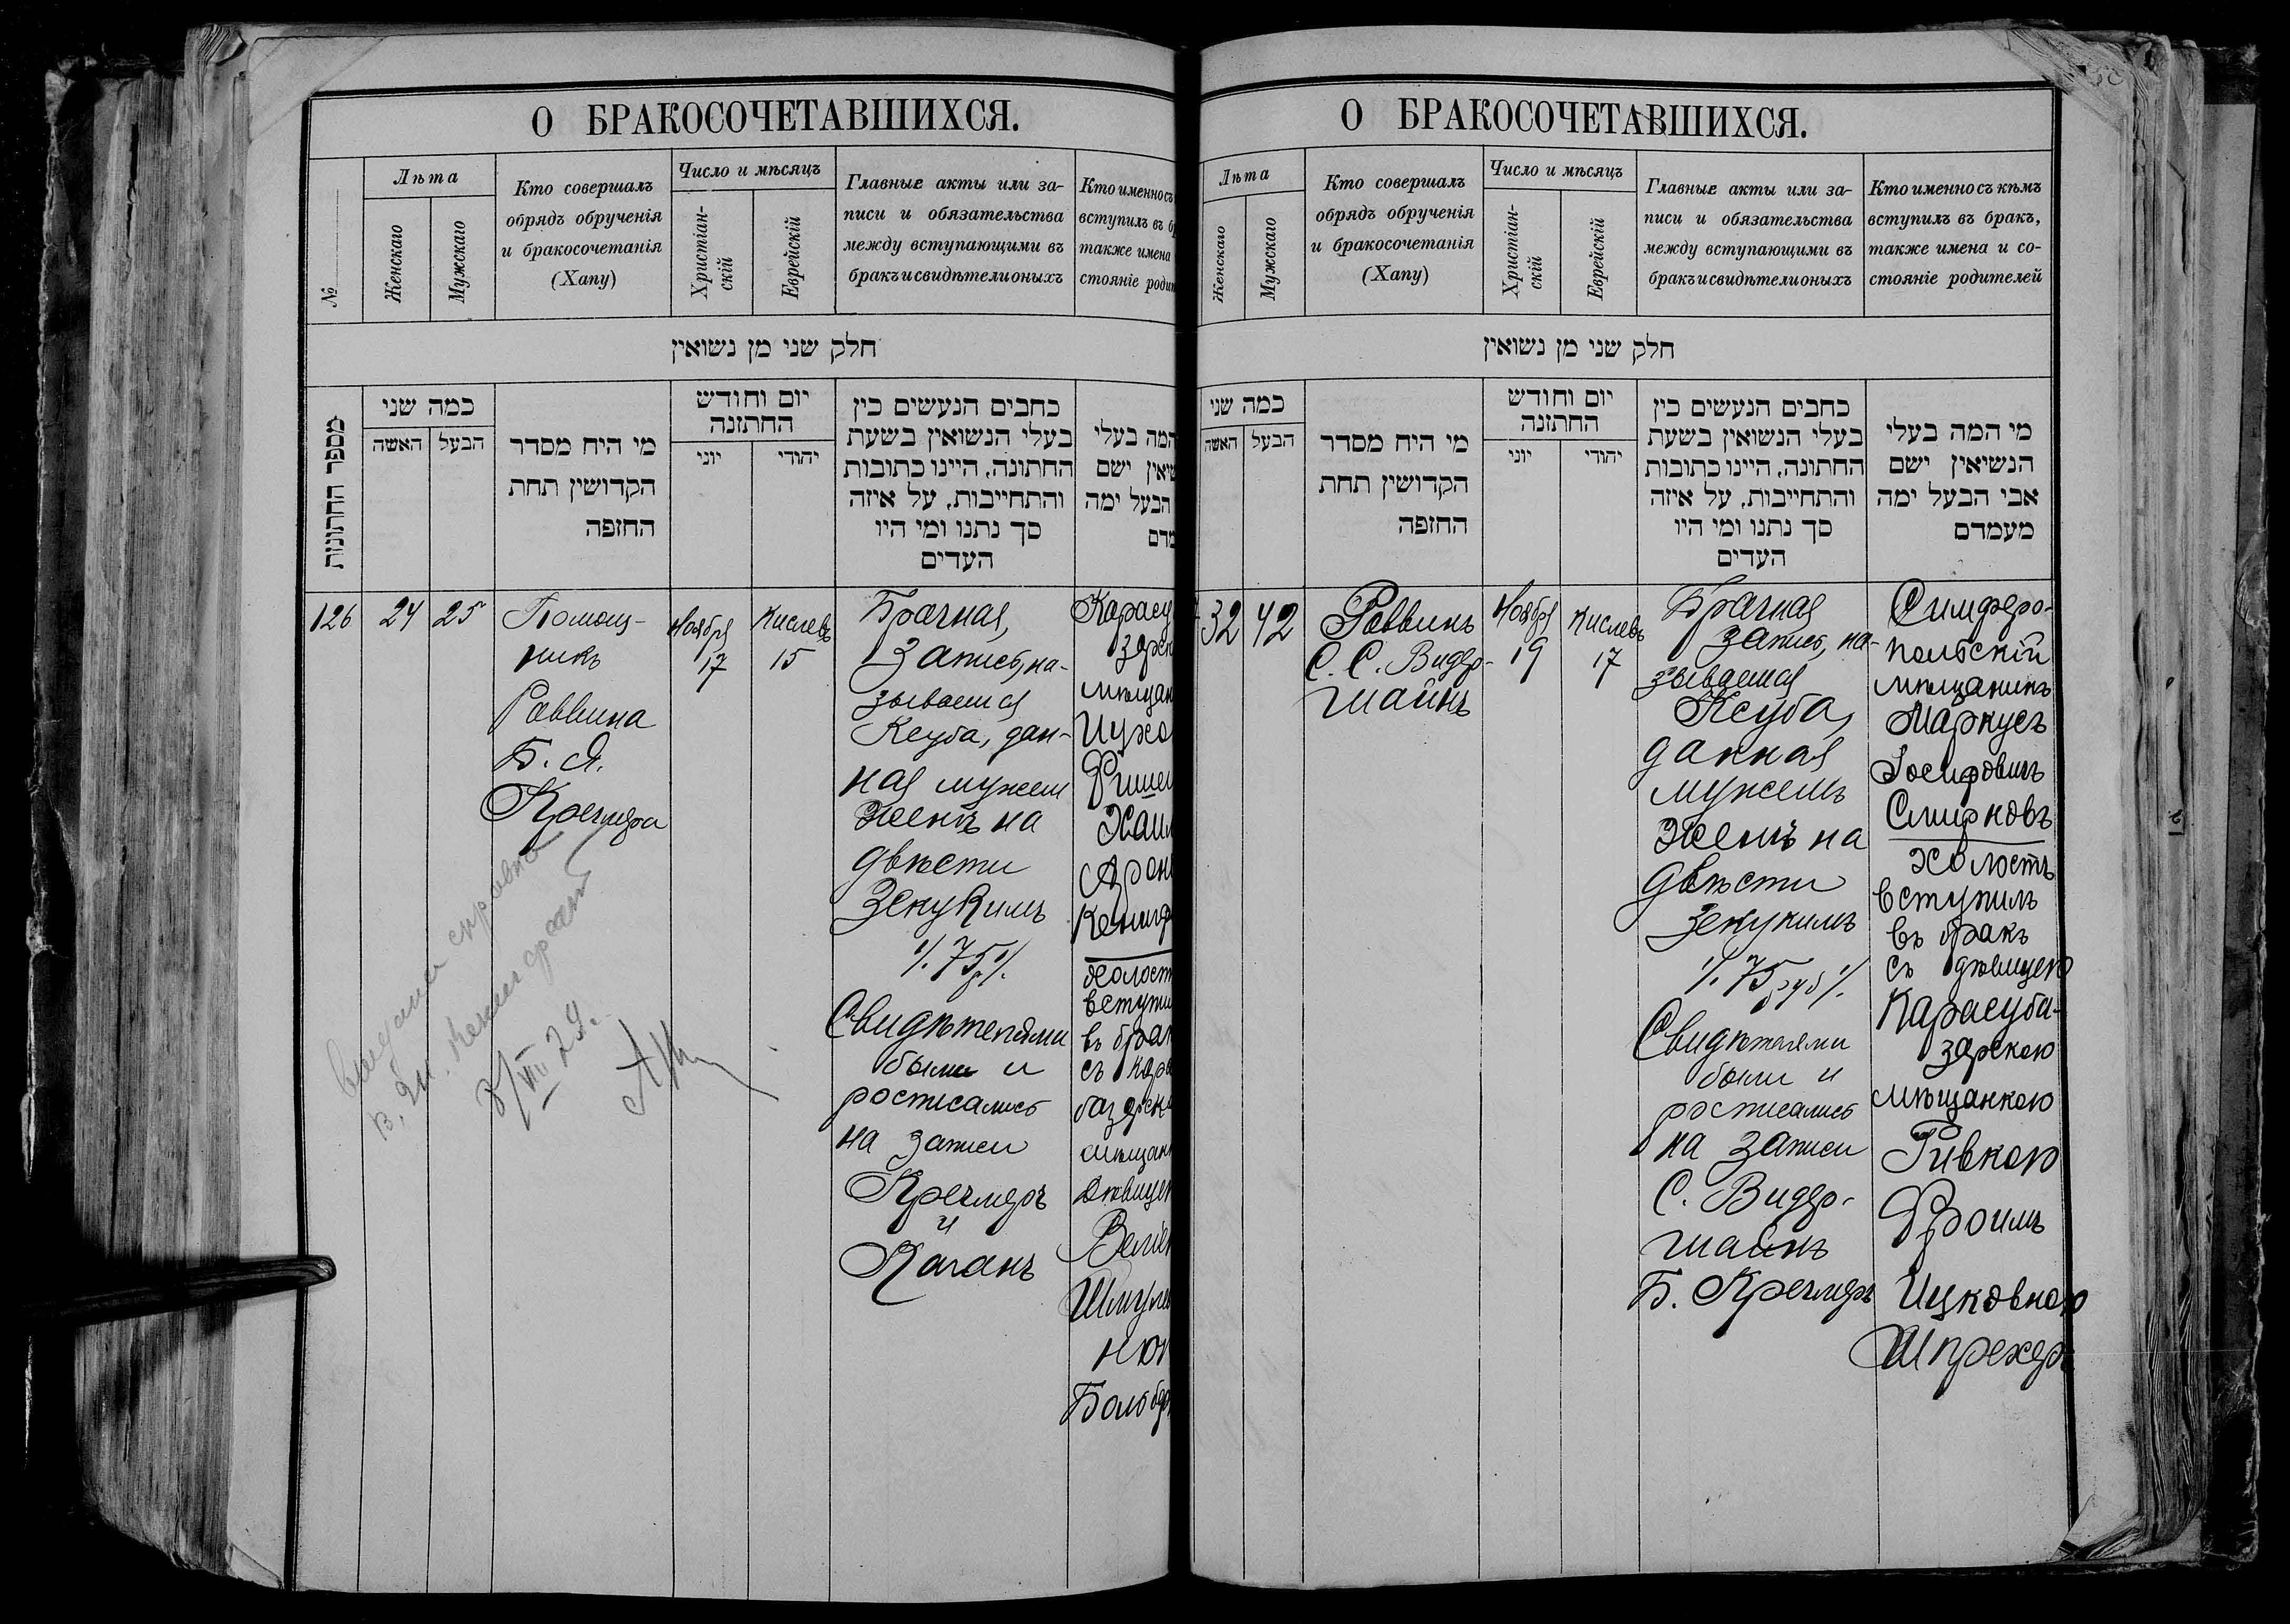 О БРАКОСОЧЕТАВШИХСЯ.
№
Лѣта
Женскаго
Мужскаго
Кто совершалъ
обрядъ обрученія
и бракосочетанія
(Хапу)
Число и мѣсяцъ
Христіан-
скій
Еврейскій
Главные акты или за-
писи и обязательства
между вступающими въ
бракъ и свидѣтели оныхъ
Кто именно съ
вступилъ въ б
также имена
стояніе роди
חלק שני מן נשואין
מספר החתונות
כמה שני
האשה
הבעל
מי היח מסדר
הקדושין תחת
החופה
יום וחודש
החתונה
יוני
יהודי
כתבים הנעשים בין
בעלי הנשואין בשעת
החתונה, היינו כתובות
והתחייבות, על איזה
סך נתנו ומי היו
העדים
המה בעלי
שואין ישם
הבעל ימה
מדם
126
24
25
Помощ-
никъ
Раввина
Б. Я.
Кречмера
Ноября
17
Кислевъ
15
Брачная,
Запись, на-
зываемая
Ксуба, дан-
ная мужем
женѣ на
двѣсти
Зекукимъ
75
Свидѣтелями
были и
росписались
на записи
Кречмеръ
и
Каганъ
Карасу
зарск
мѣщан
Ицхо
Фишел
Хаим
Арон
Кениг
холост
вступи
въ брак
съ кара
базарск
мѣщан
дѣвицею
Шмуле
Выдана справка
8/VIII 29 г.
О БРАКОСОЧЕТАВШИХСЯ.
Лѣта
Женскаго
Мужскаго
Кто совершалъ
обрядъ обрученія
и бракосочетанія
(Хапу)
Число и мѣсяцъ
Христіан-
скій
Еврейскій
Главные акты или за-
писи и обязательства
между вступающими въ
бракъ и свидѣтели оныхъ
Кто именно съ кѣмъ
вступилъ въ бракъ,
также имена и со-
стояніе родителей
חלק שני מן נשואין
כמה שני
האשה
הבעל
מי היח מסדר
הקדושין תחת
החופה
יום וחודש
החתונה
יוני
יהודי
כתבים הנעשים בין
בעלי הנשואין בשעת
החתונה, היינו כתובות
והתחייבות, על איזה
סך נתנו ומי היו
העדים
מי המה בעלי
הנשיאין ישם
אבי הבעל ימה
מעמדם
32
42
Раввинъ
С. С. Видер-
шайнъ
Ноября
19
Кислевъ
17
Брачная
запись, на-
зываемая
Ксуба,
данная
мужемъ
женѣ на
двѣсти
зекукимъ
75 руб
Свидѣтелями
были и
росписались
на записи
С. Видер-
шайнъ
Б. Кречмеръ
Симферо-
польскій
мѣщанинъ
Маркусъ
Іосифовичъ
Смирновъ
холостъ
вступилъ
въ бракъ
съ дѣвицею
Карасуба-
зарскою
мѣщанкою
Ривкою
Фроимъ
Ицковною
Шпрехеръ